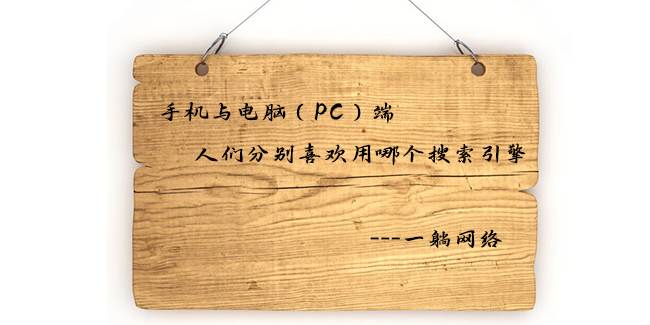 手机与电脑（PC）端
人们分别喜欢用哪个搜索引擎
---一躺网络